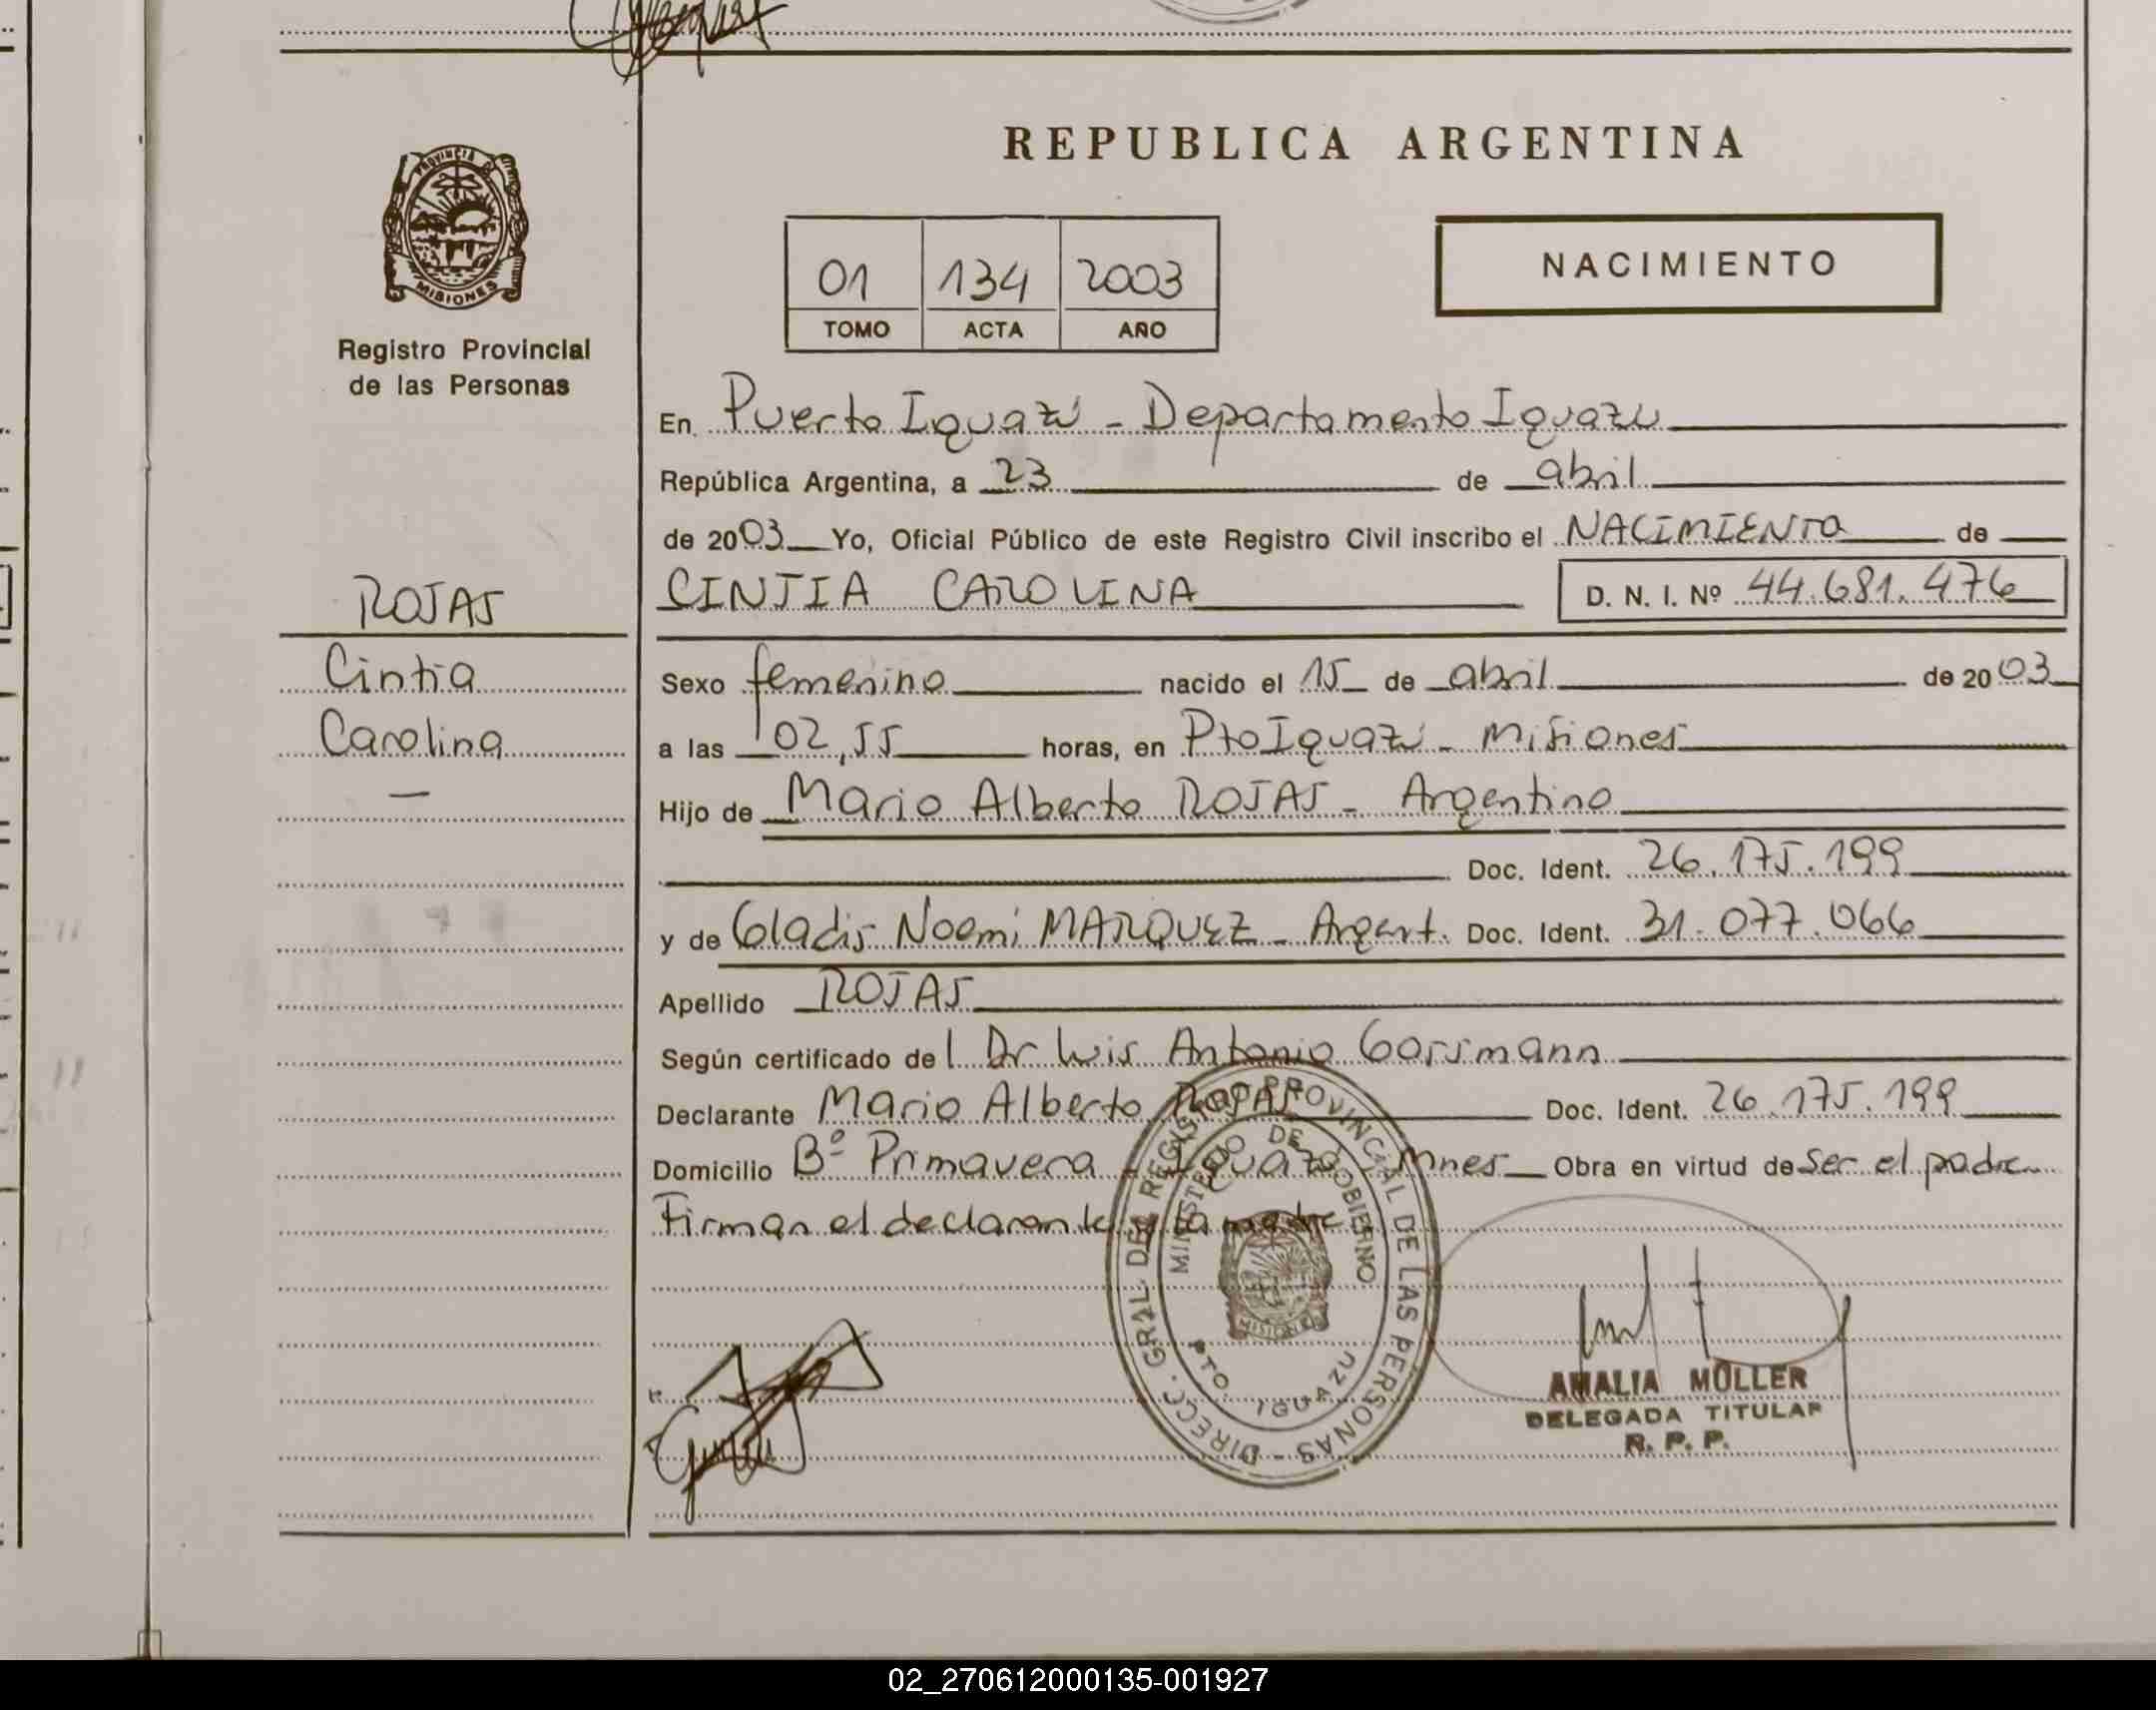 REPUBLICA ARGENTINA
PROVINCIA DE MISIONES
Registro Provincial
de las Personas
01 134 2003
TOMO ACTA AÑO
NACIMIENTO
En Puerto Iguazú - Departamento Iguazú
República Argentina, a 23 de abril
de 2003 Yo, Oficial Público de este Registro Civil inscribo el NACIMIENTO de
ROJAS
CINTIA CAROLINA D. N. I. Nº 44.681.476
Cintia
Sexo femenino nacido el 15 de abril de 2003
Carolina
a las 02,55 horas, en Pto Iguazú - Misiones
Hijo de Mario Alberto ROJAS - Argentino
Doc. Ident. 26.175.199
y de Gladis Noemi MARQUEZ - Argent. Doc. Ident. 31.077.066
Apellido ROJAS
Según certificado del Dr Luis Antonio Gorsmann
Declarante Mario Alberto ROJAS Doc. Ident. 26.175.199
Domicilio Bº Primavera - Iguazú - Mnes Obra en virtud de ser el padre
Firman el declarante y la madre
DIRECC. GRAL. DEL REGISTRO PROVINCIAL DE LAS PERSONAS
MINISTERIO DE GOBIERNO
MISIONES
PTO. IGUAZU
AMALIA MÜLLER
DELEGADA TITULAR
R. P. P.
02_270612000135-001927